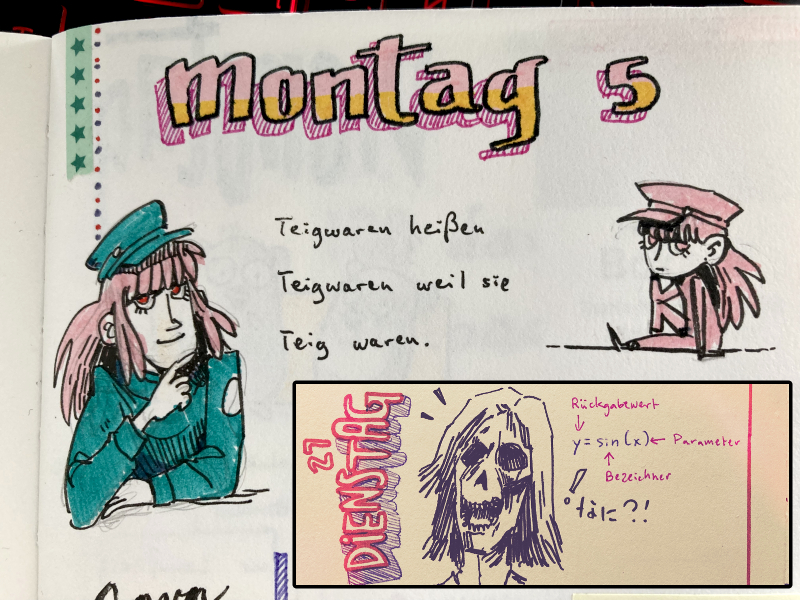 montag 5
Teigwaren heißen
Teigwaren weil sie
Teig waren.
27
DiENSTÄG
Rückgabewert
y = sin(x) ← Parameter
Bezeichner